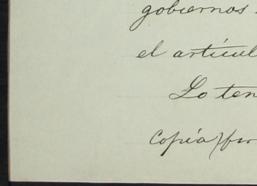 gobiernos
el artícul
Lo ten
copia